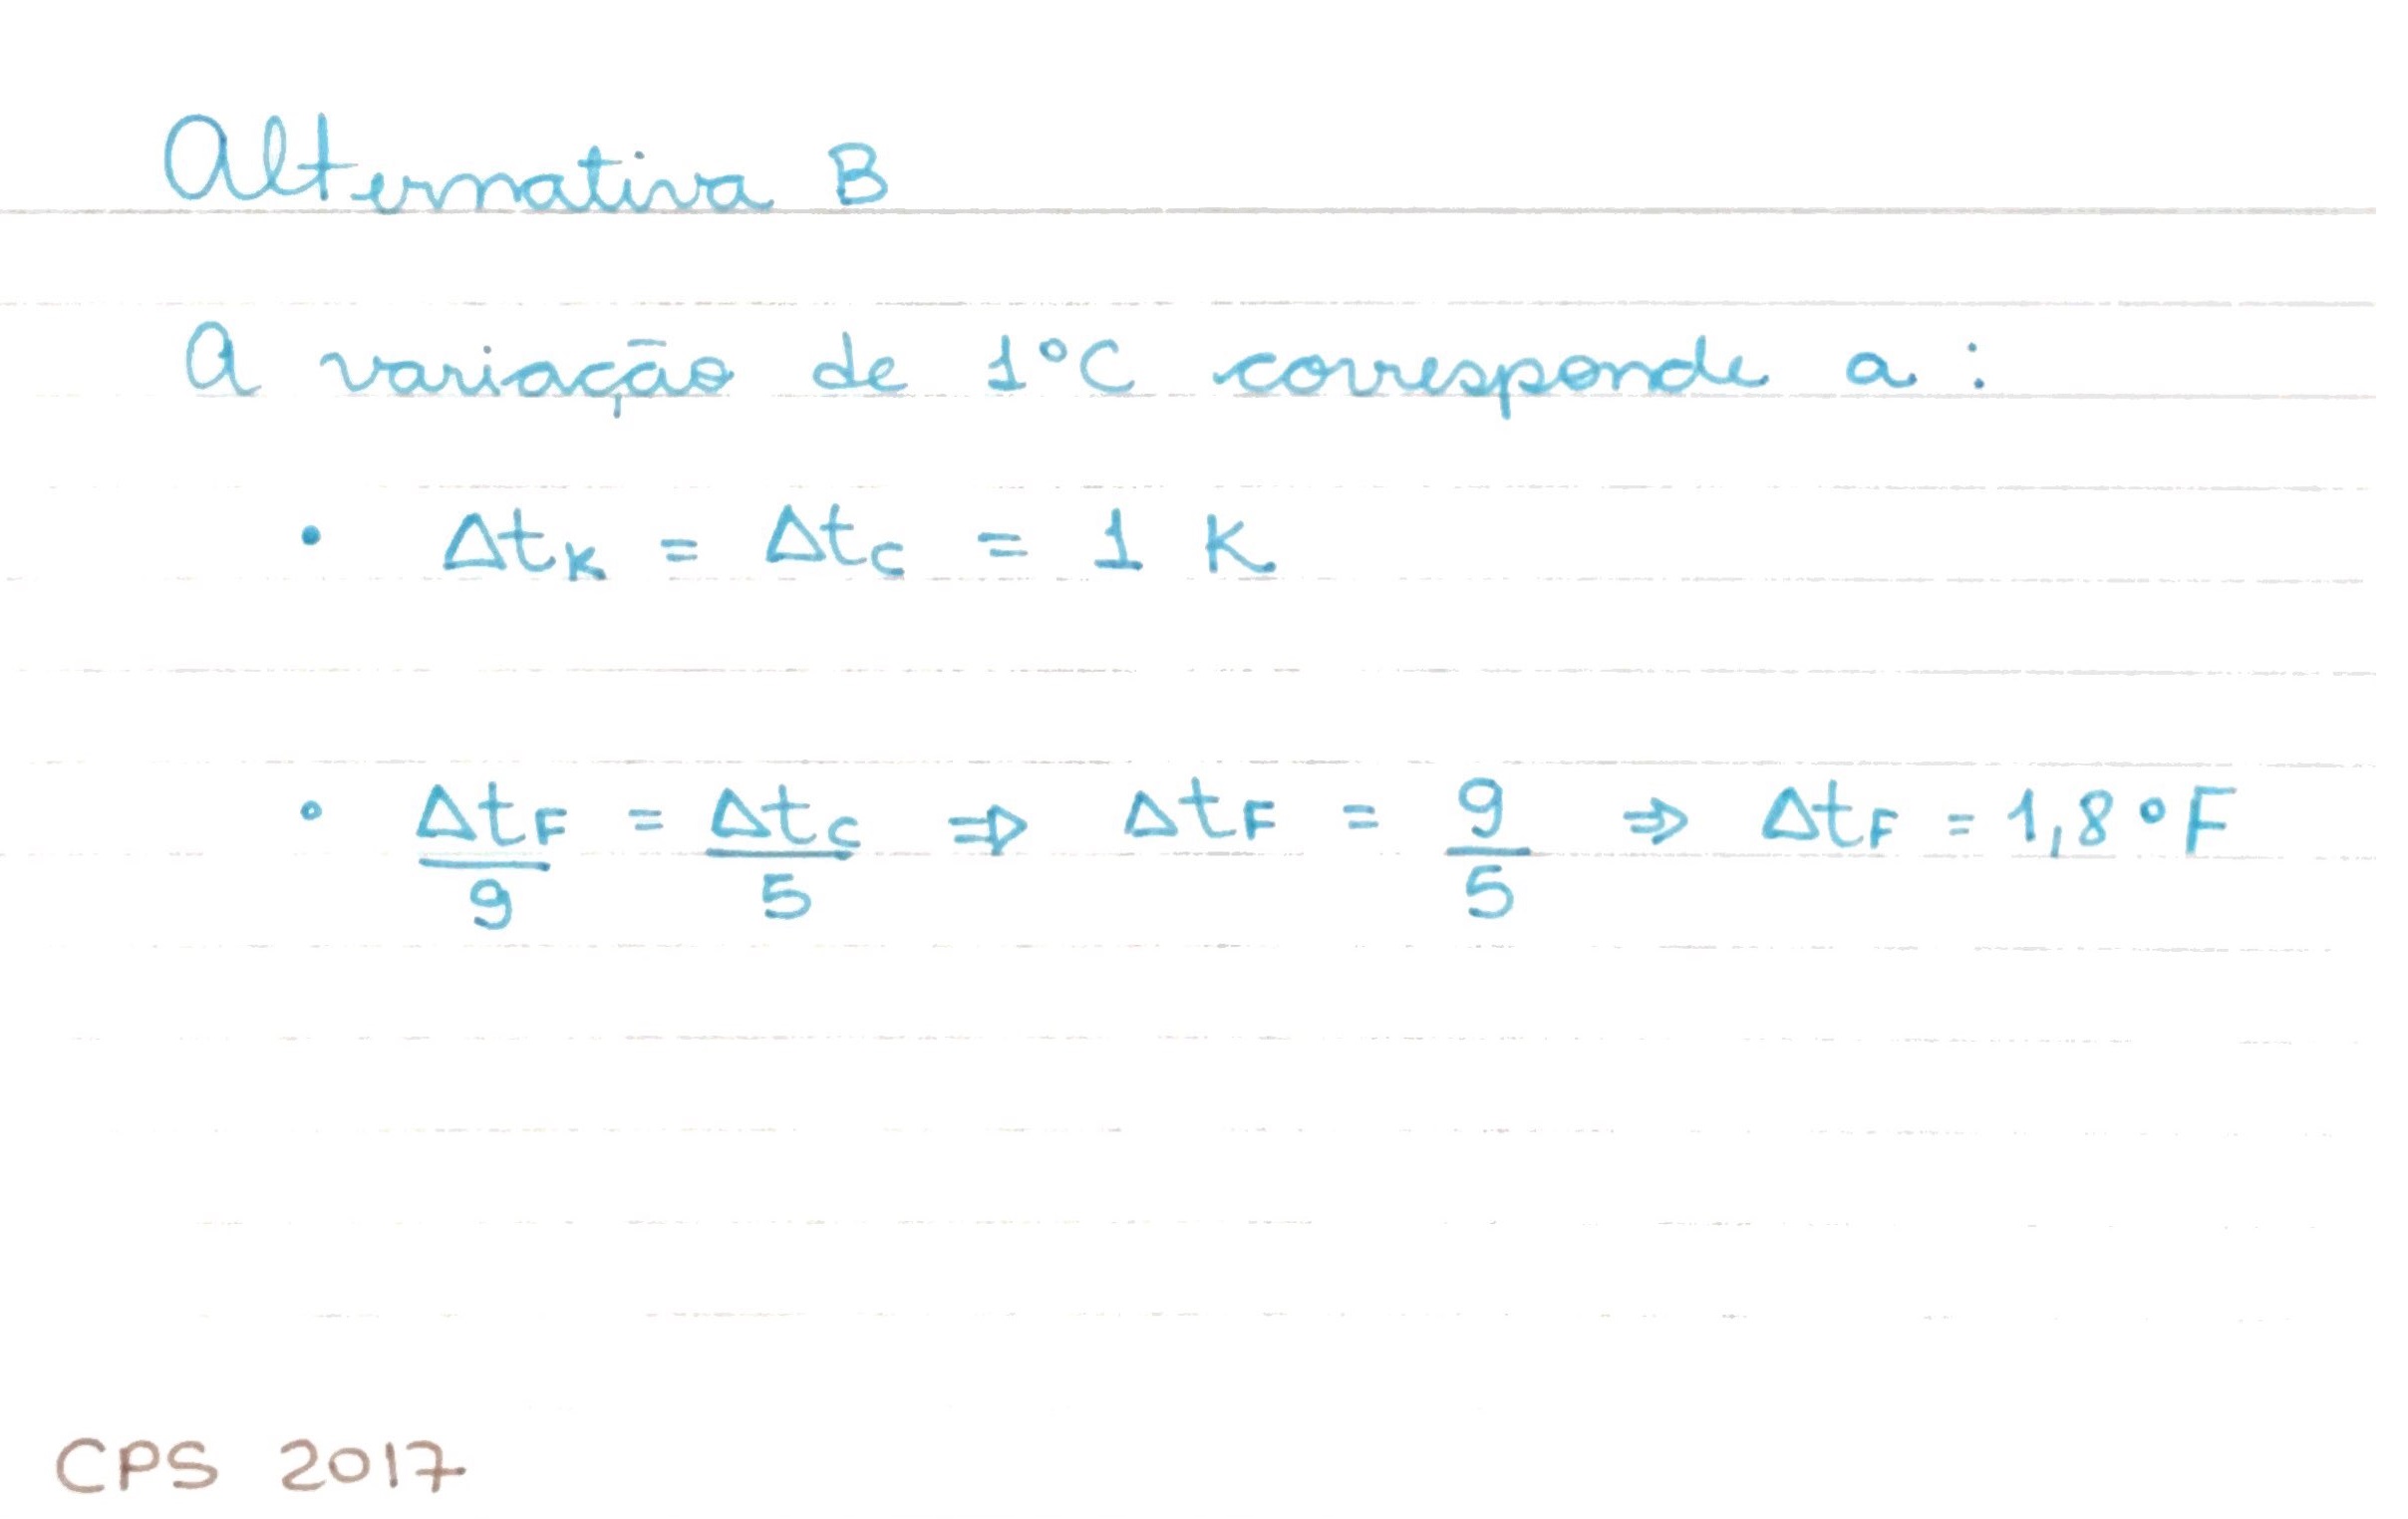 Alternativa B
A variação de 1°C corresponde a:
• Δt_K = Δt_C = 1 K
• Δt_F/9 = Δt_C/5 ⇒ Δt_F = 9/5 ⇒ Δt_F = 1,8 °F
CPS 2017